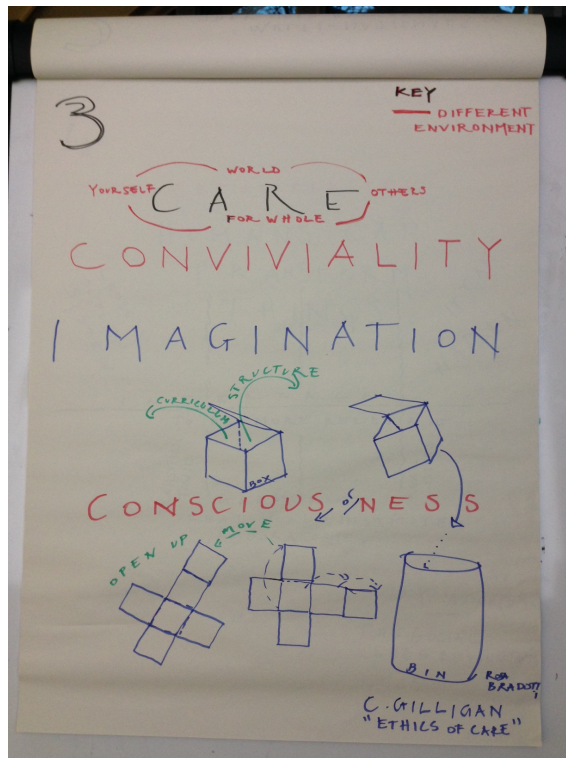 3
KEY
DIFFERENT
ENVIRONMENT
WORLD
YOURSELF CARE OTHERS
FOR WHOLE
CONVIVIALITY
IMAGINATION
CURRICULUM
STRUCTURE
BOX
CONSCIOUSNESS
or
OPEN UP
MOVE
BIN
ROSI
BRADOTTI
C. GILLIGAN
"ETHICS OF CARE"